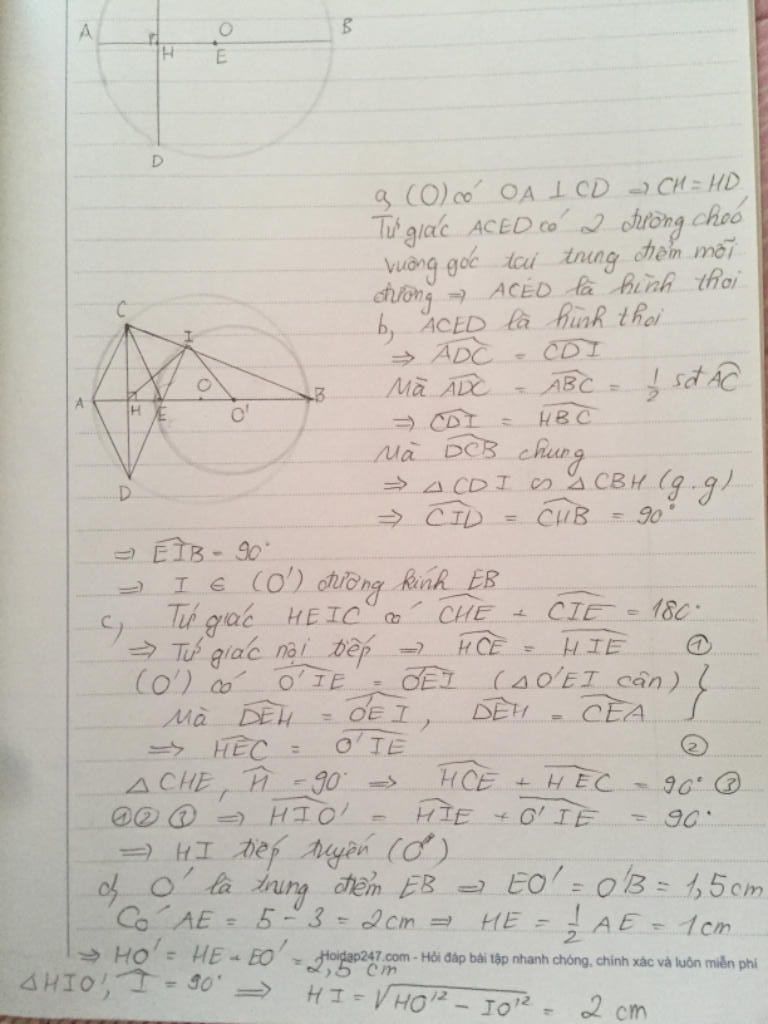 A H O E B
D
a, (O) có OA ⊥ CD ⇒ CH = HD
Tứ giác ACED có 2 đường chéo
vuông góc tại trung điểm mỗi
đường ⇒ ACED là hình thoi
b, ACED là hình thoi
⇒ \widehat{ADC} = \widehat{CDI}
Mà \widehat{ADC} = \widehat{ABC} = 1/2 sđ \widehat{AC}
⇒ \widehat{CDI} = \widehat{HBC}
Mà \widehat{DCB} chung
⇒ △CDI ∽ △CBH (g.g)
⇒ \widehat{CID} = \widehat{CHB} = 90°
C
I
A H E O O' B
D
⇒ \widehat{EIB} = 90°
⇒ I ∈ (O') đường kính EB
c, Tứ giác HEIC có \widehat{CHE} + \widehat{CIE} = 180°
⇒ Tứ giác nội tiếp ⇒ \widehat{HCE} = \widehat{HIE} ①
(O') có \widehat{O'IE} = \widehat{O'EI} (△O'EI cân) }
Mà \widehat{DEH} = \widehat{O'EI}, \widehat{DEH} = \widehat{CEA}
⇒ \widehat{HEC} = \widehat{O'IE} ②
△CHE, \widehat{H} = 90° ⇒ \widehat{HCE} + \widehat{HEC} = 90° ③
①②③ ⇒ \widehat{HIO'} = \widehat{HIE} + \widehat{O'IE} = 90°
⇒ HI tiếp tuyến (O')
d, O' là trung điểm EB ⇒ EO' = O'B = 1,5cm
Có AE = 5 - 3 = 2cm ⇒ HE = 1/2 AE = 1cm
⇒ HO' = HE + EO' = 2,5 cm
Hoidap247.com - Hỏi đáp bài tập nhanh chóng, chính xác và luôn miễn phí
△HIO', \widehat{I} = 90° ⇒ HI = √(HO'² - IO'²) = 2 cm